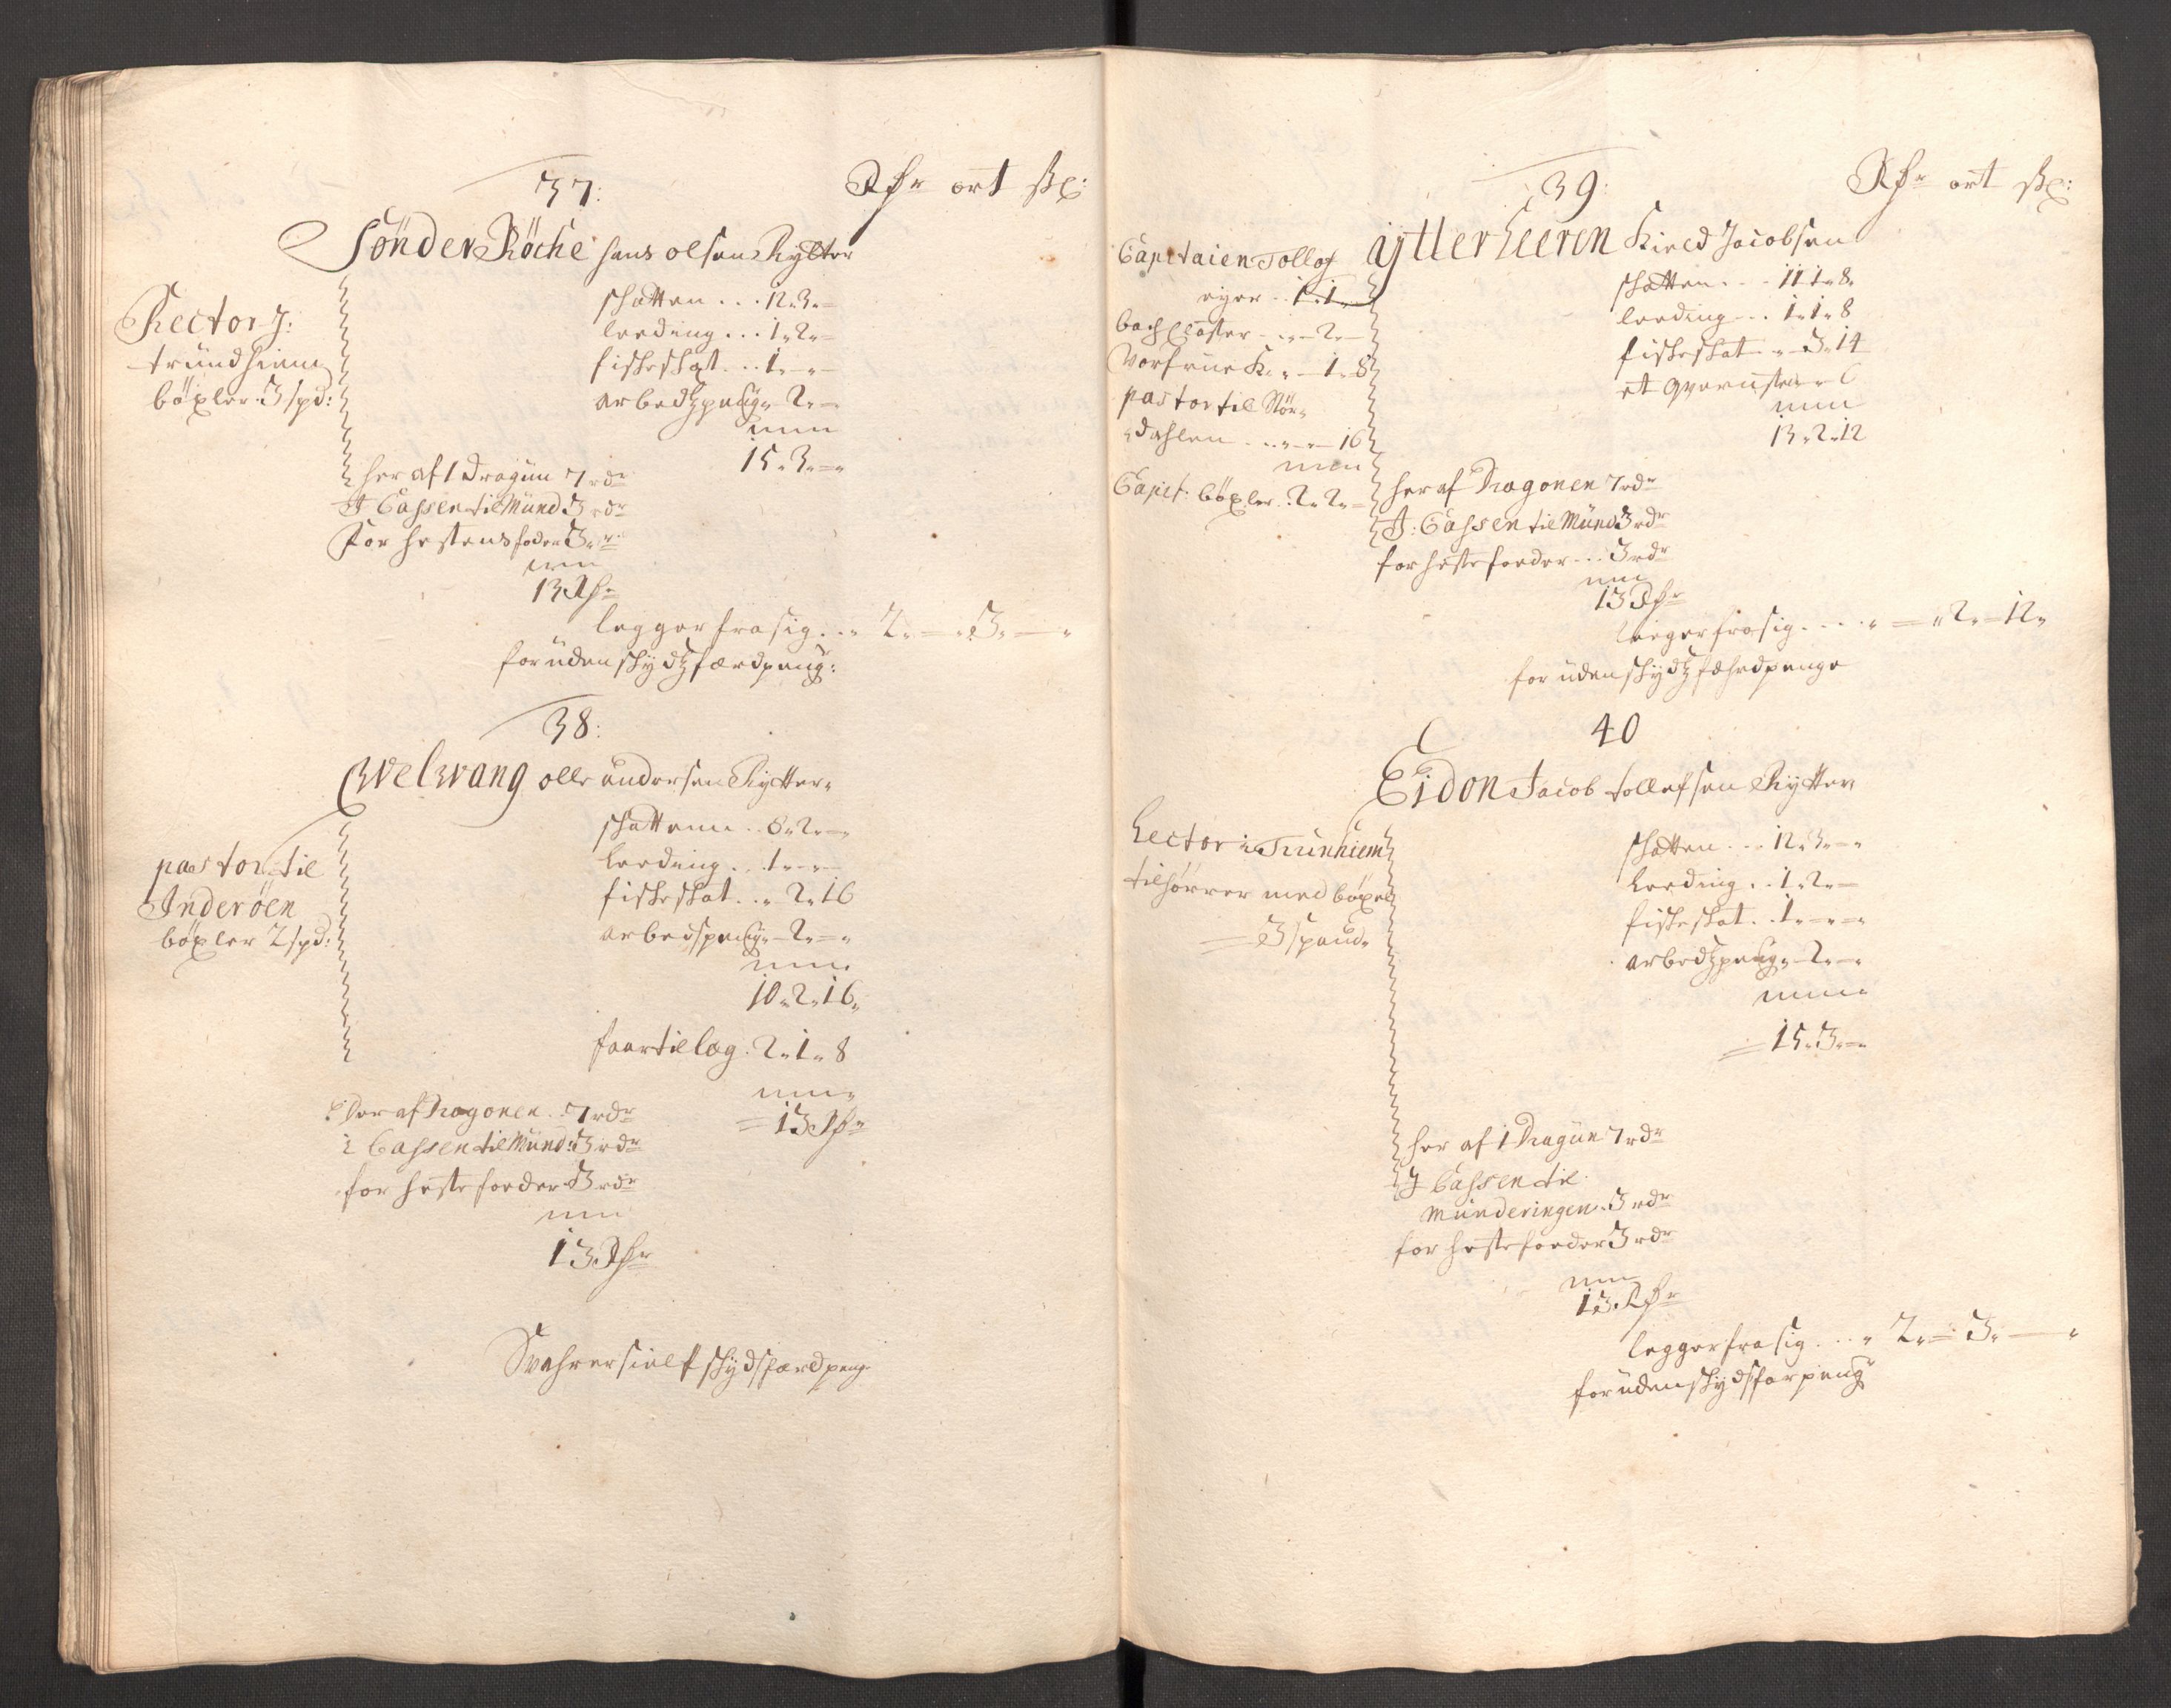 37:
Rdr ort sk:
Sönder Röche hans olsen Rytter
Rector J:
trundhiem
böxler 3 spd:
skatten . . . 12. 3. –
leeding . . . 1. 2. –
fiskeskat . . 1. – –
arbedtzpeng „ 2. –
15. 3. –
her af 1 Dragun 7 rdr
J Cassen til Mund 3 rdr
For hestens foder 3 „
13 Rdr
legger fra sig . . „ 2. – 3. –
foruden skydtzfærdpeng:
38:
Qvelvang olle andersen Rytter
pastor til
Inderöen
böxler 2 spd:
skattenn . . 8. 2. –
leeding . . 1. – –
fiskeskat . . „ 2. 16
arbedspeng „ 2. –
10. 2. 16.
faar tillæg . 2. 1. 8
= 13 Rdr
Der af Dragonen . 7 rdr
i Cassen til Mund: 3 rdr
for heste foeder 3 rdr
13 Rdr
Svahrer sielf skydsfærdpeng
39:
Rdr ort sk:
ytterheeren Kield Jacobsen
Capitaien Tollof
eyer . . 1. 1. –
bachCloster – „ 2. –
Vorfrue K. „ – 1. 8
pastor til Stör-
dahlen . . . „ – 16
Capit: böxler . 2. 2. –
skatten . . . 11. 1. 8.
leeding . . . 1. 1. 8
fiskeskat . „ 3. 14
et qvernsted „ – 6
13. 2. 12
her af Dragonen 7 rdr
J: Cassen til Mund 3 rdr
for heste foeder . . . 3 rdr
13 Rdr
leeger fra sig . . . . „ – „ 2. – 12.
foruden skydtz fæhrdpenge
40
Eidon Jacob tollefsen Rytter
Lector i Trunhiem
tilhörrer med böxel
= 3 spand.
skatten . . . 12. 3. –
Leeding . . 1. 2. –
fiskeskat . 1. – –
arbedtzpeng „ 2. –
= 15. 3. –
her af 1 Dragun 7 rdr
J Cassen til
Munderingen . 3 rdr
for heste foeder 3 rdr
13 Rdr
legger fra sig . . „ 2. – 3. –
foruden skydsfærpeng